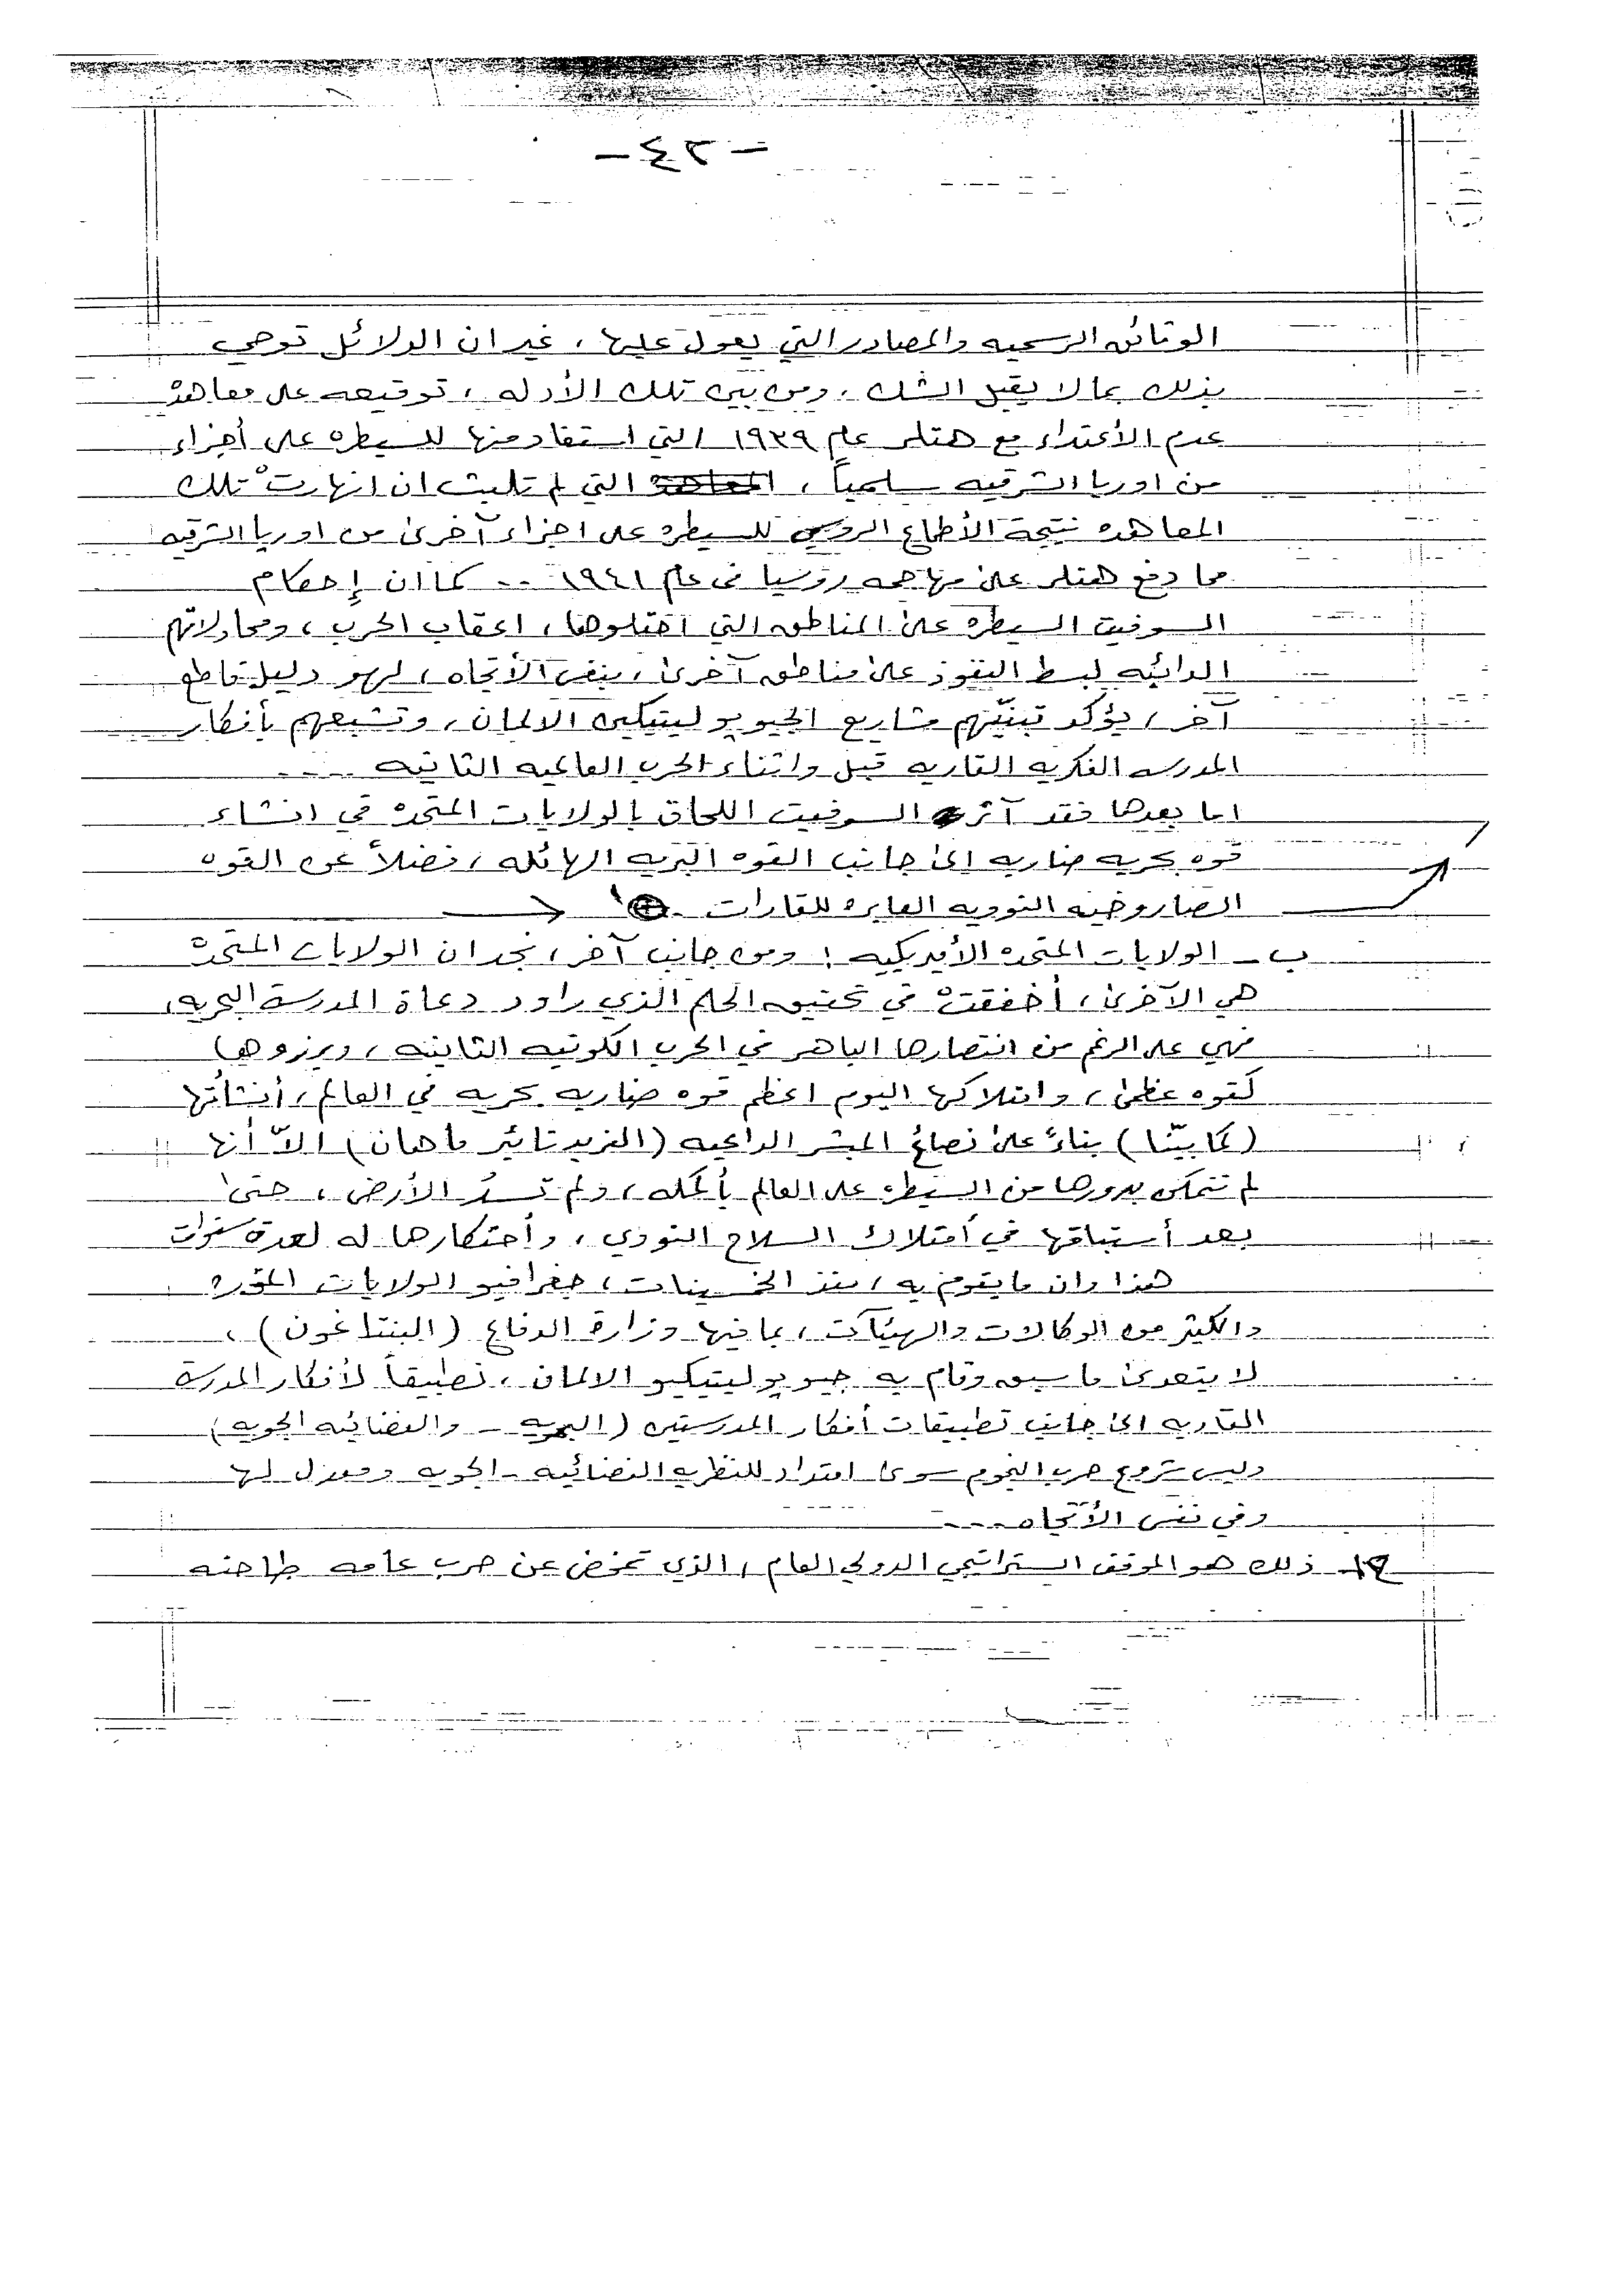 -٤٢-
الوثائق الرسميه والمصادر التي يعول عليها ، غير ان الدلائل توحي
بذلك بما لا يقبل الشك ، ومن بين تلك الأدله ، توقيعه على معاهدة
عدم الأعتداء مع هتلر عام ١٩٣٩ التي استفاد منها للسيطره على أجزاء
من اوربا الشرقيه سلمياً ، التي لم تلبث ان انهارتْ تلك
المعاهده نتيجة الأطماع الروسيه للسيطره على اجزاء آخرى من اوربا الشرقيه
مما دفع هتلر على مهاجمه روسيا في عام ١٩٤١ -- كما ان إحكام
السوفيت السيطره على المناطق التي احتلوها ، اعقاب الحرب ، ومحاولاتهم
الدائبه لبسط النفوذ على مناطق آخرى ، بنفس الأتجاه ، لهو دليل قاطع
آخر ، يؤكد تبنّيهم مشاريع الجيوپوليتيكيين الالمان ، وتشبعهم بأفكار
المدرسه الفكريه القاريه قبل واثناء الحرب العالميه الثانيه ----
اما بعدها فقد آثر السوفيت اللحاق بالولايات المتحده في انشاء
قوه بحريه ضاربه الى جانب القوه البريه الهائله ، فضلاً عن القوه
الصاروخيه النوويه العابره للقارات .
ب - الولايات المتحده الأمريكيه : ومن جانب آخر ، نجد ان الولايات المتحدة
هي الآخرى ، أخفقتْ في تحقيق الحلم الذي راود دعاة المدرسة البحريه ،
فهي على الرغم من انتصارها الباهر في الحرب الكونيه الثانيه ، وبرزوها
كقوه عظمى ، وامتلاكها اليوم اعظم قوه ضاربه بحريه في العالم ، أنشأتها
(كما بيّنا) بناءً على نصائح المبشر الداعيه (الفريد تاثير ماهان) الاّ أنها
لم تتمكن بدورها من السيطره على العالم بأكمله ، ولم تسدُ الأرض ، حتى
بعد أستباقها في أمتلاك السلاح النووي ، وأحتكارها له لعدة سنوات
هذا وان ما يقوم به ، منذ الخمسينات ، جغرافيو الولايات المتحده
والكثير من الوكالات والهيئآت ، بما فيها وزارة الدفاع (البنتاغون) ،
لا يتعدى ما سبق وقام به جيوپوليتيكيو الالمان ، تطبيقاً لأفكار المدرسة
القاريه الى جانب تطبيقات أفكار المدرستين (البحريه - والفضائيه الجويه)
وليس مشروع حرب النجوم سوى امتداد للنظريه الفضائيه - الجويه ومعدل لها
وفي نفس الأتّجاه ---
ذلك هو الموقف الستراتيجي الدولي العام ، الذي تمخض عن حرب عامه طاحنه